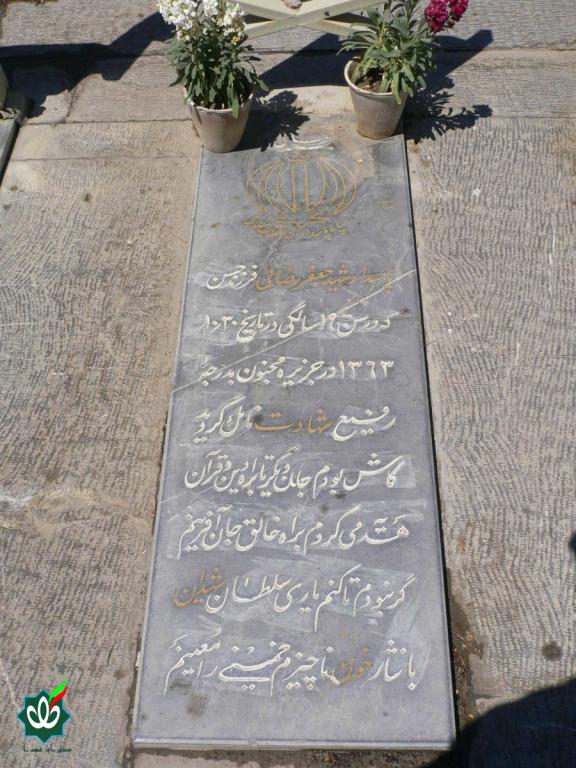 پاسدار رشید جعفر رضائی فرزند حسن
که در سن ۱۹ سالگی در تاریخ ۱۰/۳۰
۱۳۶۳ در جزیره مجنون بدرجه
رفیع شهادت نایل گردید
کاش بودم جان دیگر تا براه دین و قرآن
هدیه می کردم براه خالق جان آفرینم
گر نبودم تا کنم یاری سلطان شهیدان
با نثار خون ناچیزم خمینی را معینم